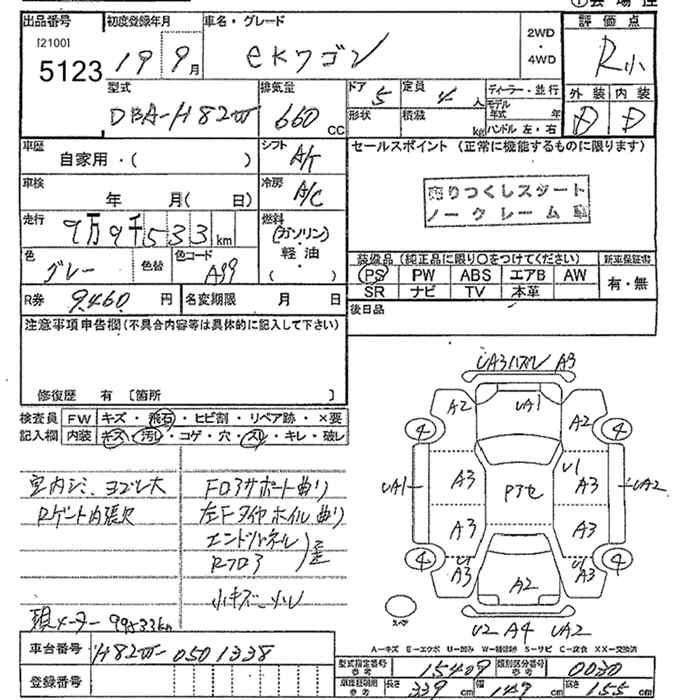 出品番号 初度登録年月 車名・グレード 評価点
[2100] 5123 19 9月 eKワゴン 2WD・4WD R小
型式 排気量 ドア 5 定員 4 人 ディーラー・並行 外装 内装
DBA-H82W 660 cc 形状 積載 kg モデル年式 年 ハンドル 左・右 D D
車歴 自家用・( ) シフト A/T セールスポイント (正常に機能するものに限ります)
車検 年 月( 日) 冷房 A/C 売りつくしスタート
ノークレーム
走行 9万9千533km 燃料 (ガソリン)・軽油・( )
色 グレー 色替 色コード A99 装備品 (純正品に限り○をつけてください) 新車保証書
PS PW ABS エアB AW 有・無
SR ナビ TV 本革
R券 9460 円 名変期限 月 日 後日品
注意事項申告欄(不具合内容等は具体的に記入して下さい)
修復歴 有 [箇所 ]
検査員 FW キズ・飛石・ヒビ割・リペア跡・×要
記入欄 内装 キズ・汚レ・コゲ・穴・スレ・キレ・破レ
室内シミ、ヨゴレ大 Fロアサポート曲り
Rゲート内張欠 左Fタイヤホイル曲り
エンドパネル
Rフロア 歪
小キズ 小凹
現メーター 99533km
UA3ハズレ A3
A2 UA1 A2
4 4
UA1 A3 Pアセ U1 A3 UA2
A3 A3
4 4
U1 A3 A2 U1 A3
スペア
U2 A4 UA2
A-キズ E-エクボ U-凹み W-補修跡 S-サビ C-腐食 XX-交換済
車台番号 H82W-0501338
登録番号
型式指定番号 参考 15409 類別区分番号 参考 0030
長さ 339 cm 幅 147 cm 高さ 155 cm